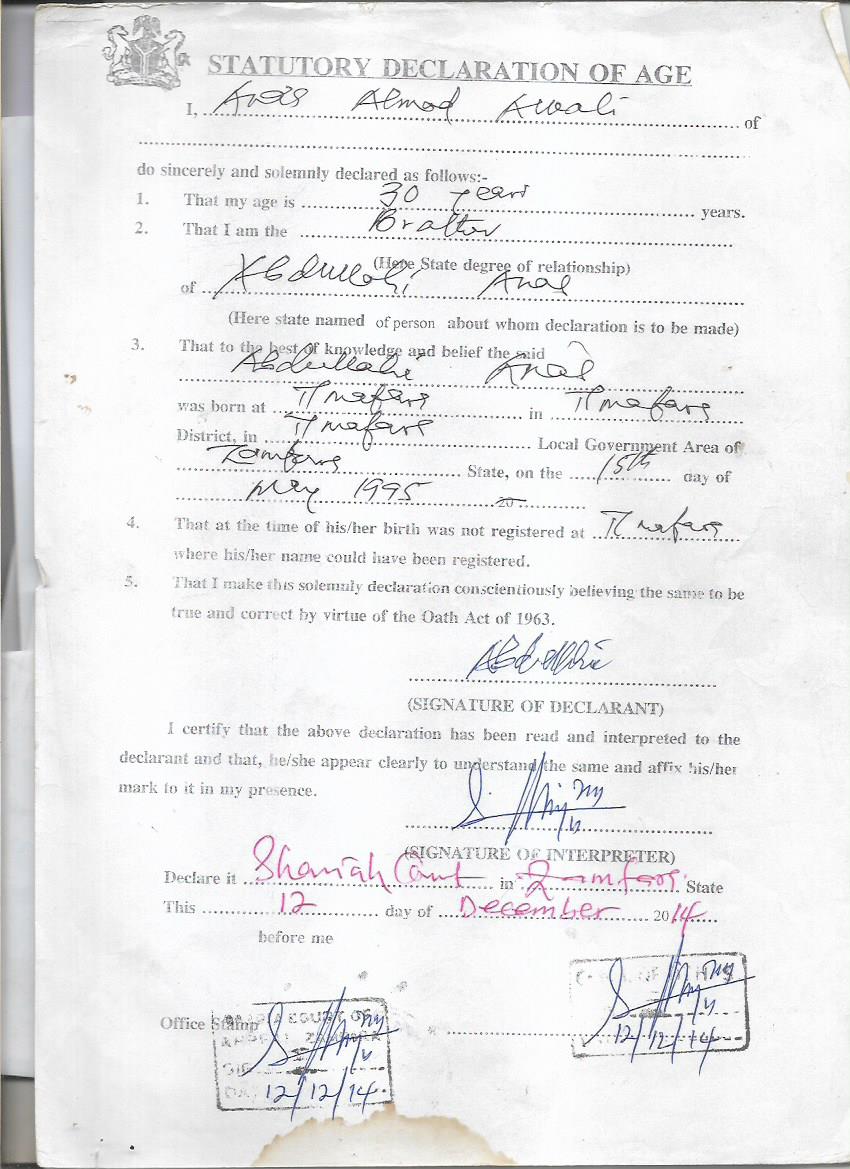 STATUTORY DECLARATION OF AGE
I, Anas Ahmad Awali of
do sincerely and solemnly declared as follows:-
1. That my age is 30 years years.
2. That I am the Brother
(Here State degree of relationship)
of Abdullahi Anas
(Here state named of person about whom declaration is to be made)
3. That to the best of knowledge and belief the said
Abdullahi Anas
was born at T/mafara in T/mafara
District, in T/mafara Local Government Area of
Zamfara State, on the 15th day of
May 1995 20
4. That at the time of his/her birth was not registered at T/mafara
where his/her name could have been registered.
5. That I make this solemnly declaration conscientiously believing the same to be
true and correct by virtue of the Oath Act of 1963.
(SIGNATURE OF DECLARANT)
I certify that the above declaration has been read and interpreted to the
declarant and that, he/she appear clearly to understand the same and affix his/her
mark to it in my presence.
(SIGNATURE OF INTERPRETER)
Declare it Shariah Court in Zamfara State
This 12 day of December 2014
before me
Office Stamp
COURT OF
APPEAL ZAMFARA
12/12/14
12/12/14